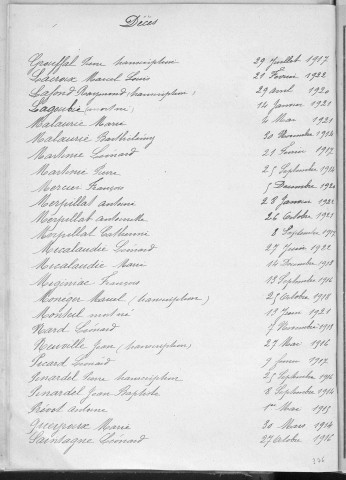 Décès
Crouffal Pierre transcription 29 Juillet 1917
Lacroix Marcel Louis 21 Février 1922
Lafond Raymond (transcription) 29 avril 1920
Laguebie (mort né) 14 Janvier 1921
Malaurie Marie 6 Mai 1921
Malaurie Barthélemy 20 Novembre 1916
Martinie Léonard 21 Février 1917
Martinie Pierre 25 Septembre 1914
Mercier François 5 Décembre 1920
Merpillat Antoine 28 Janvier 1921
Merpillat Antoinette 26 Octobre 1921
Merpillat Catherine 8 Septembre
Mecalaudie Léonard 27 Février 1922
Mecalaudie Marie 14 Décembre 1918
Meginiac François 13 Septembre 1916
Moneger Marcel (transcription) 25 Octobre 1918
Monteil mort né 13 Juin 1921
Nard Léonard 7 Novembre 1918
Neuville Jean (transcription) 27 Mai 1916
Picard Léonard 9 Février 1917
Pinardel Pierre transcription 25 Septembre 1916
Pinardel Jean Baptiste 8 Septembre 1914
Prévot Antoine 1er Mai 1919
Queyroux Marie 20 Mars 1914
Saintagne Léonard 27 Octobre 1916